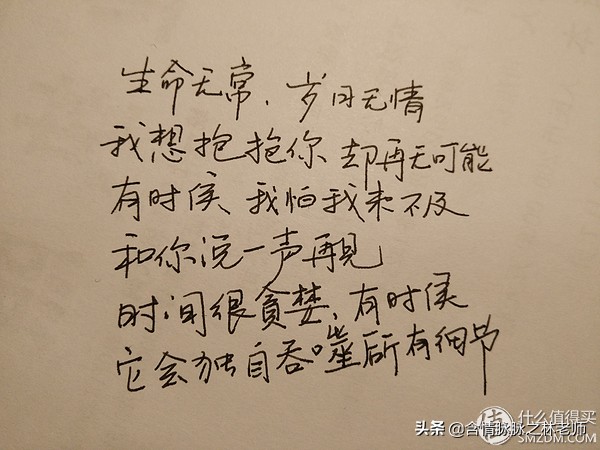 生命无常、岁月无情
我想抱抱你 却再无可能
有时候 我怕我来不及
和你说一声再見
时间很貪婪、有时候
它会独自吞噬所有细节
值 什么值得买
SMZDM.COM
头条 @含情脉脉之林老师